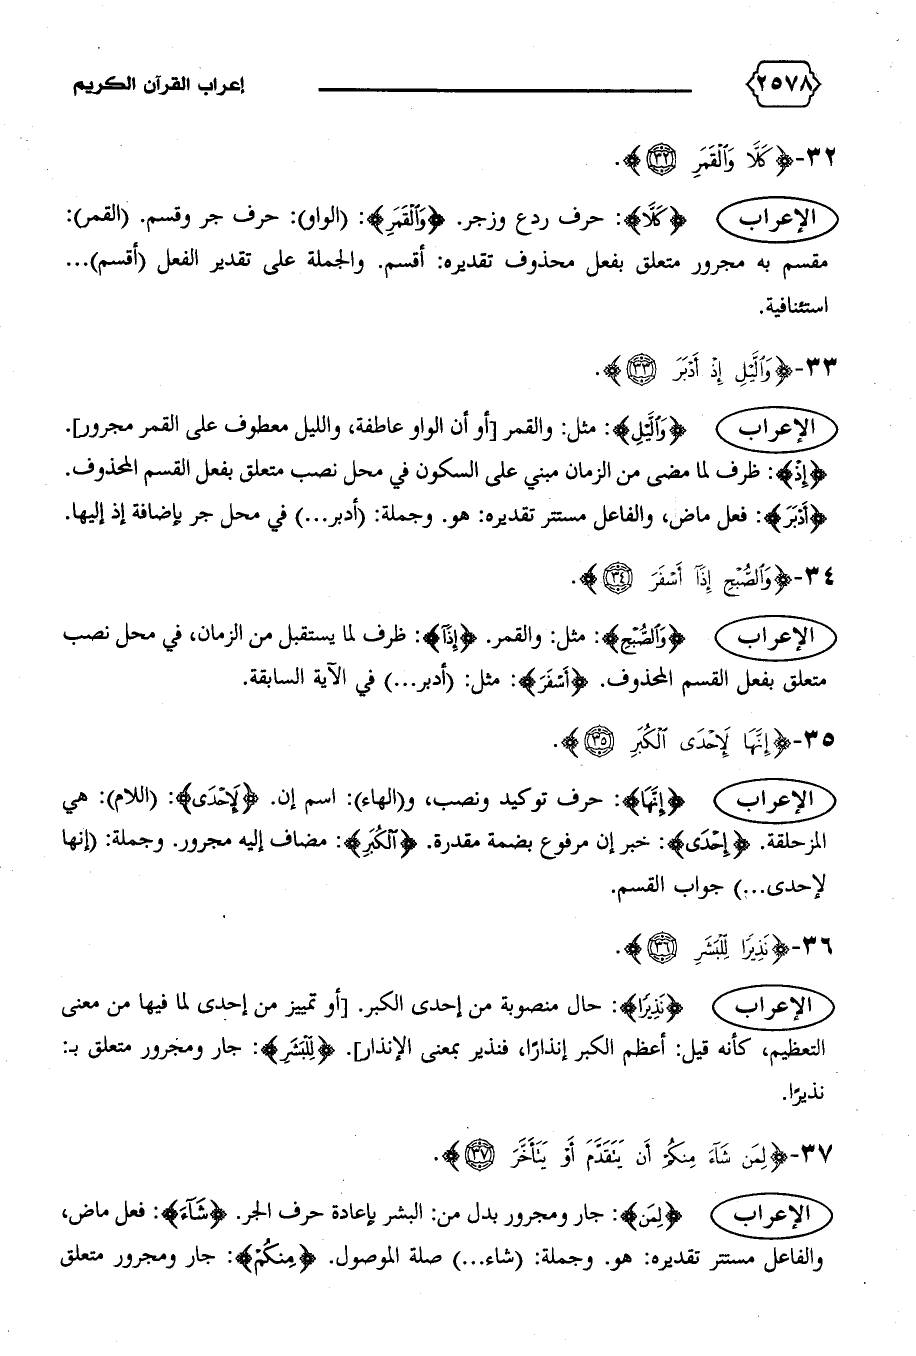 ٢٥٧٨ إعراب القرآن الكريم
٣٢-﴿كَلَّا وَٱلْقَمَرِ ٣٢﴾.
الإعراب ﴿كَلَّا﴾: حرف ردع وزجر. ﴿وَٱلْقَمَرِ﴾: (الواو): حرف جر وقسم. (القمر):
مقسم به مجرور متعلق بفعل محذوف تقديره: أقسم. والجملة على تقدير الفعل (أقسم)...
استئنافية.
٣٣-﴿وَٱلَّيْلِ إِذْ أَدْبَرَ ٣٣﴾.
الإعراب ﴿وَٱلَّيْلِ﴾: مثل: والقمر [أو أن الواو عاطفة، والليل معطوف على القمر مجرور].
﴿إِذْ﴾: ظرف لما مضى من الزمان مبني على السكون في محل نصب متعلق بفعل القسم المحذوف.
﴿أَدْبَرَ﴾: فعل ماض، والفاعل مستتر تقديره: هو. وجملة: (أدبر...) في محل جر بإضافة إذ إليها.
٣٤-﴿وَٱلصُّبْحِ إِذَآ أَسْفَرَ ٣٤﴾.
الإعراب ﴿وَٱلصُّبْحِ﴾: مثل: والقمر. ﴿إِذَآ﴾: ظرف لما يستقبل من الزمان، في محل نصب
متعلق بفعل القسم المحذوف. ﴿أَسْفَرَ﴾: مثل: (أدبر...) في الآية السابقة.
٣٥-﴿إِنَّهَا لَإِحْدَى ٱلْكُبَرِ ٣٥﴾.
الإعراب ﴿إِنَّهَا﴾: حرف توكيد ونصب، و(الهاء): اسم إن. ﴿لَإِحْدَى﴾: (اللام): هي
المزحلقة. ﴿إِحْدَى﴾: خبر إن مرفوع بضمة مقدرة. ﴿ٱلْكُبَرِ﴾: مضاف إليه مجرور. وجملة: (إنها
لإحدى...) جواب القسم.
٣٦-﴿نَذِيرًا لِّلْبَشَرِ ٣٦﴾.
الإعراب ﴿نَذِيرًا﴾: حال منصوبة من إحدى الكبر. [أو تمييز من إحدى لما فيها من معنى
التعظيم، كأنه قيل: أعظم الكبر إنذارًا، فنذير بمعنى الإنذار]. ﴿لِّلْبَشَرِ﴾: جار ومجرور متعلق بـ:
نذيرًا.
٣٧-﴿لِمَن شَآءَ مِنكُمْ أَن يَتَقَدَّمَ أَوْ يَتَأَخَّرَ ٣٧﴾.
الإعراب ﴿لِمَن﴾: جار ومجرور بدل من: البشر بإعادة حرف الجر. ﴿شَآءَ﴾: فعل ماض،
والفاعل مستتر تقديره: هو. وجملة: (شاء...) صلة الموصول. ﴿مِنكُمْ﴾: جار ومجرور متعلق